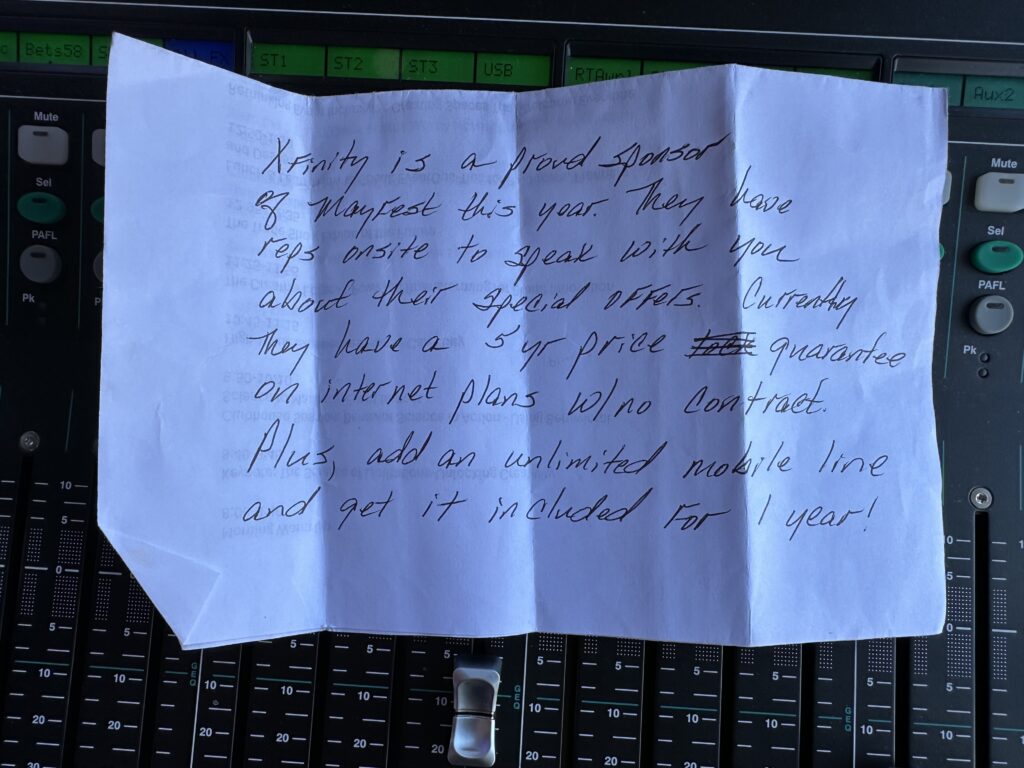 Bets58
ST1
ST2
ST3
USB
Aux2
Mute
Sel
PAFL
Pk
Mute
Sel
PAFL
Pk
Xfinity is a proud sponsor
of Mayfest this year. They have
reps onsite to speak with you
about their special offers. Currently
They have a 5 yr price guarantee
on internet plans w/no contract.
Plus, add an unlimited mobile line
and get it included for 1 year!
10
5
0
5
10
20
30
GEQ
10
5
0
5
10
20
GEQ